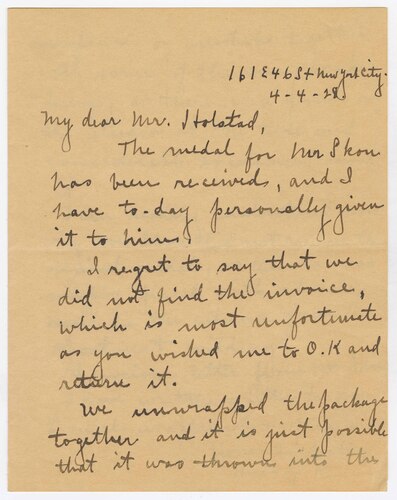 161 E 46 St New York City.
4-4-28.
My dear Mr. Holstad,
The medal for Mr Skou
has been received, and I
have to-day personally given
it to him.
I regret to say that we
did not find the invoice,
which is most unfortunate
as you wished me to O.K and
return it.
We unwrapped the package
together and it is just possible
that it was thrown into the